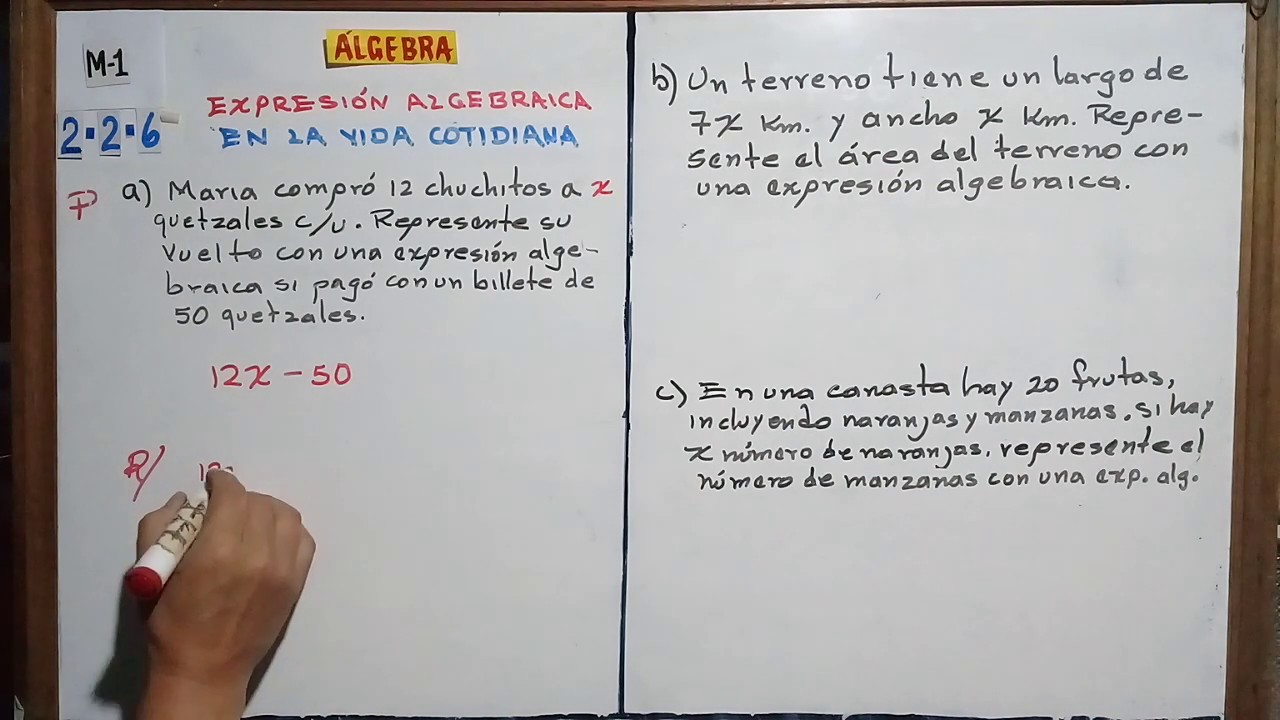 M-1
ÁLGEBRA
2.2.6
EXPRESIÓN ALGEBRAICA
EN LA VIDA COTIDIANA
P
a) María compró 12 chuchitos a x
quetzales c/u. Represente su
vuelto con una expresión alge-
braica si pagó con un billete de
50 quetzales.
12x - 50
R/ 12
b) Un terreno tiene un largo de
7x km. y ancho x km. Repre-
sente el área del terreno con
una expresión algebraica.
c) En una canasta hay 20 frutas,
incluyendo naranjas y manzanas. Si hay
x número de naranjas, represente el
número de manzanas con una exp. alg.